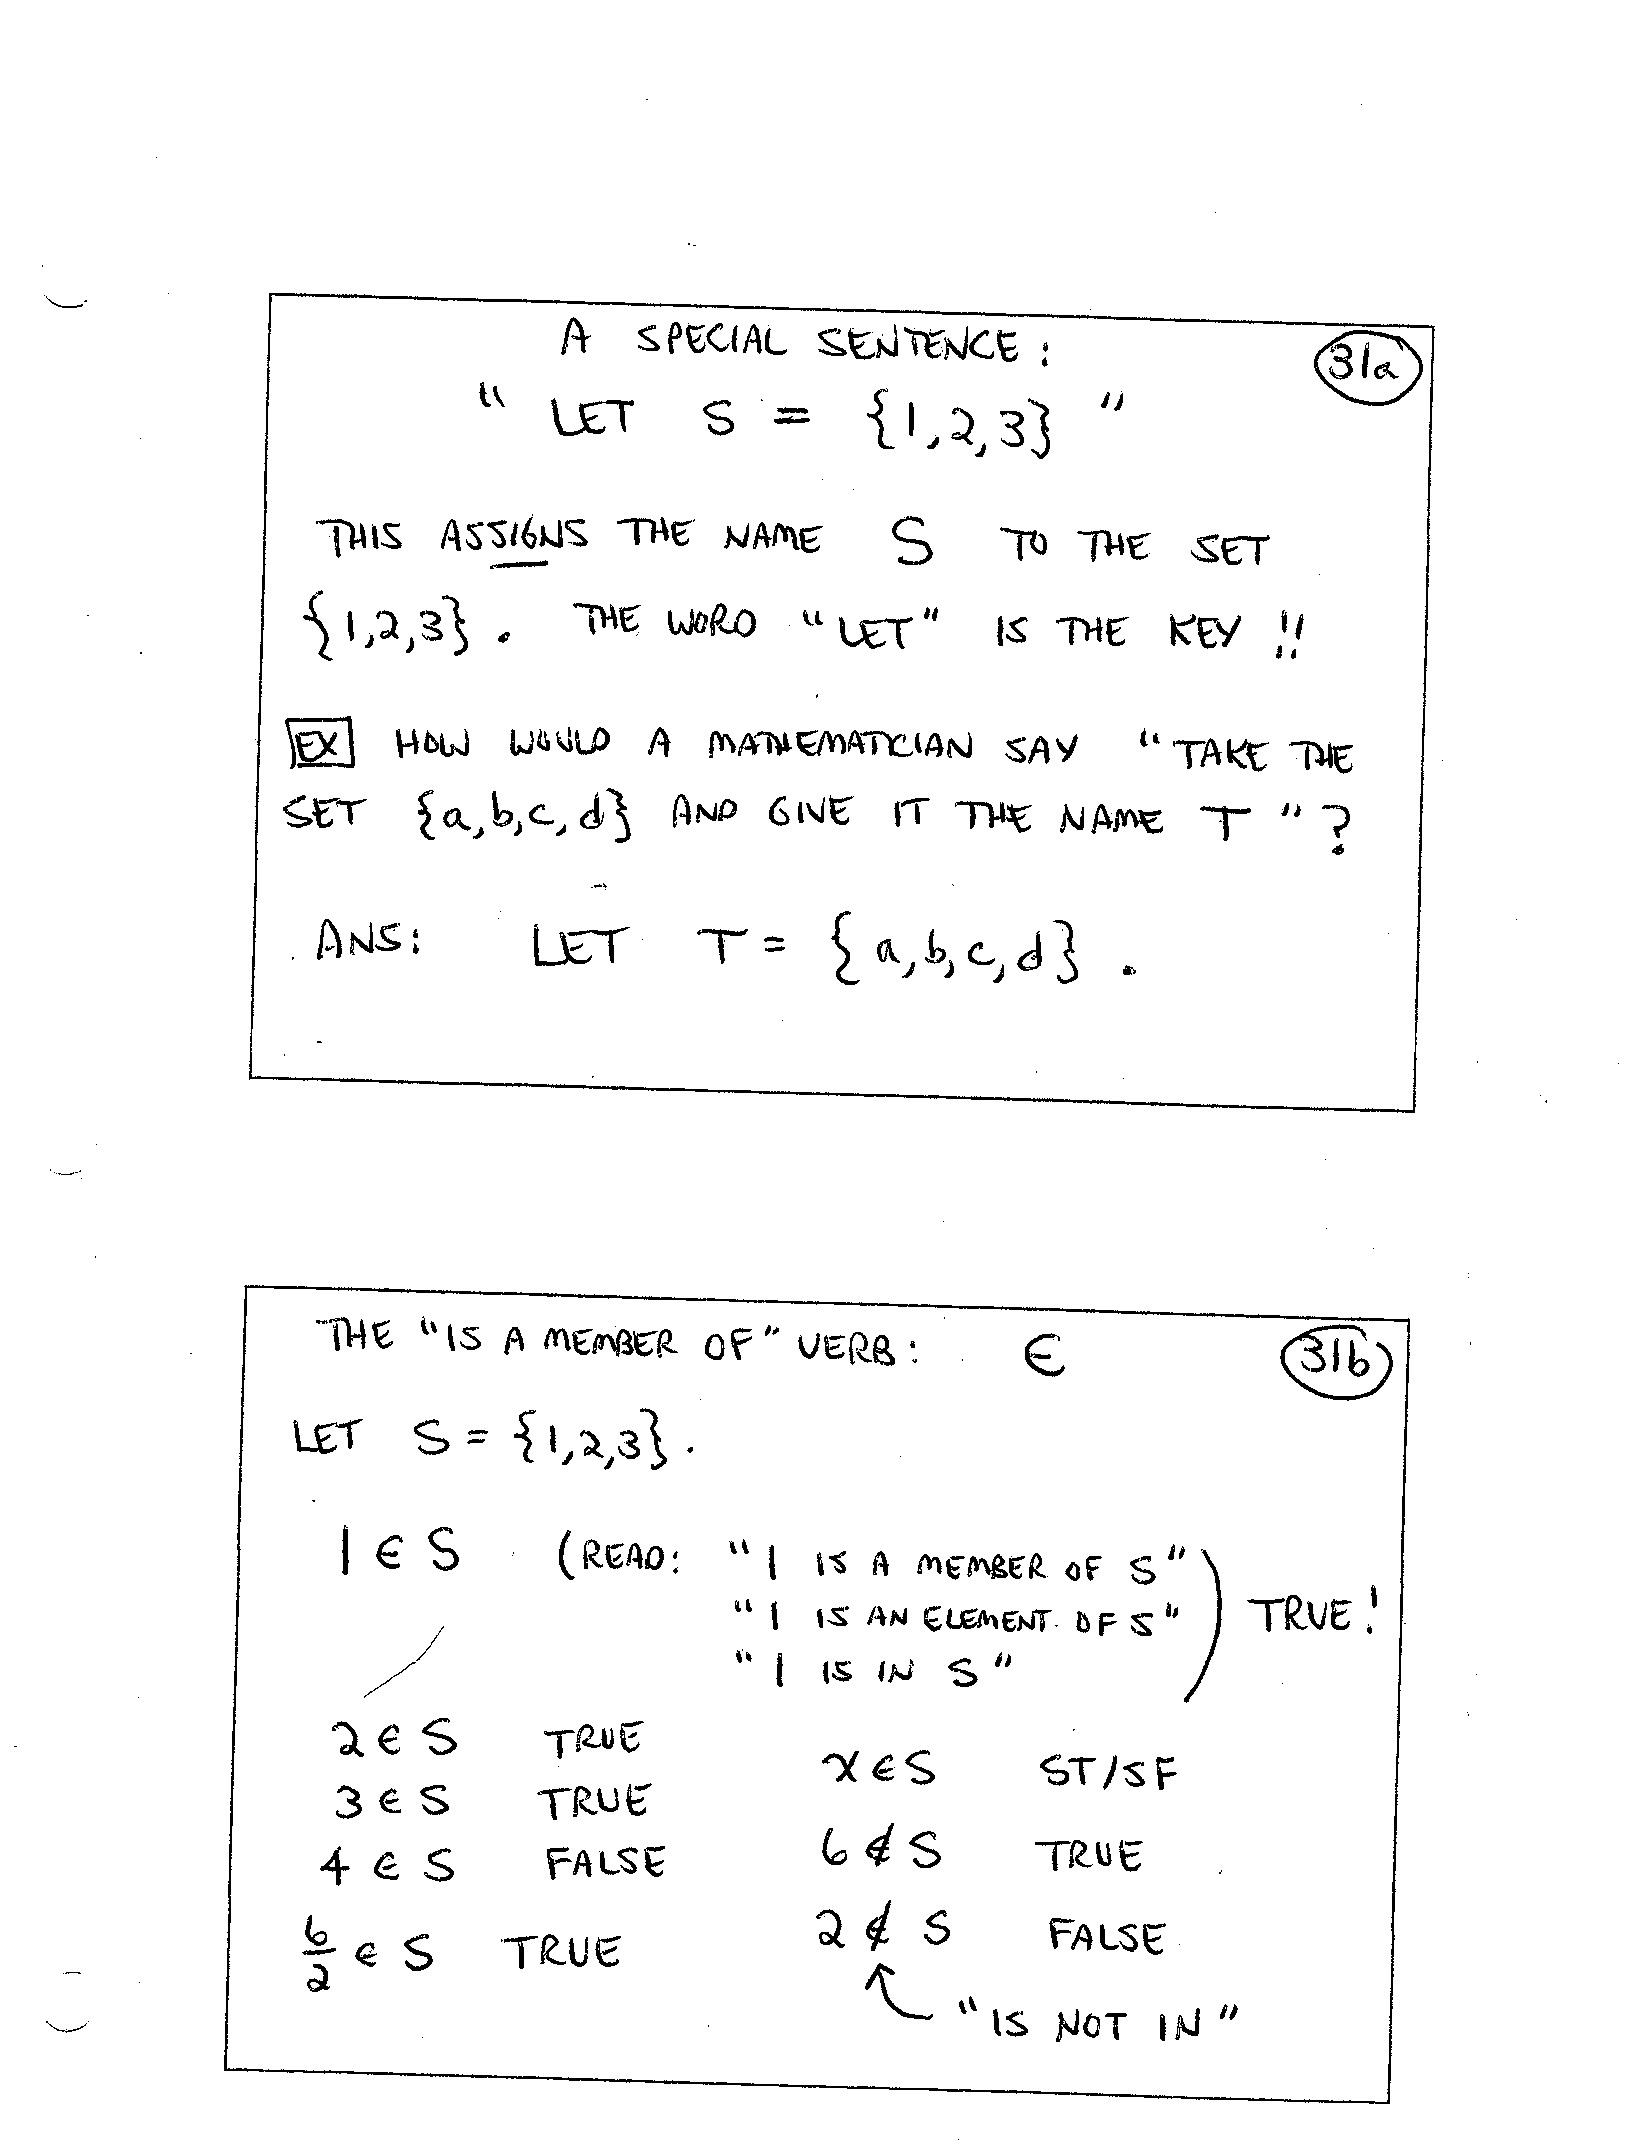 A SPECIAL SENTENCE:
31a
" LET S = {1,2,3} "
THIS ASSIGNS THE NAME S TO THE SET
{1,2,3}. THE WORD "LET" IS THE KEY !!
EX HOW WOULD A MATHEMATICIAN SAY "TAKE THE
SET {a,b,c,d} AND GIVE IT THE NAME T"?
ANS: LET T = {a,b,c,d}.
THE "IS A MEMBER OF" VERB: ∈
31b
LET S = {1,2,3}.
1 ∈ S (READ: "1 IS A MEMBER OF S"
"1 IS AN ELEMENT OF S"
"1 IS IN S" ) TRUE!
2 ∈ S TRUE
3 ∈ S TRUE
4 ∈ S FALSE
6/2 ∈ S TRUE
x ∈ S ST/SF
6 ∉ S TRUE
2 ∉ S FALSE
"IS NOT IN"